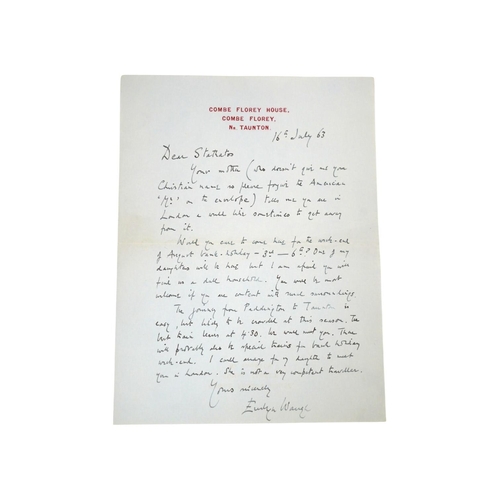 COMBE FLOREY HOUSE,
COMBE FLOREY,
Nr. TAUNTON.
16th July 63
Dear Stathatos
Your mother (who doesn't give me your
Christian name so please forgive the American
'Mr' on the envelope) tells me you are in
London & would like sometimes to get away
from it.
Would you care to come here for the week-end
of August bank-holiday – 3rd – 6th? One of my
daughters will be here but I am afraid you will
find us a dull household. You will be most
welcome if you are content with such surroundings.
The journey from Paddington to Taunton is
easy, but likely to be crowded at this season. The
best train leaves at 4.30. We would meet you. There
will probably also be special trains for bank holiday
week-end. I could arrange for my daughter to meet
you in London. She is not a very competent traveller.
Yours sincerely
Evelyn Waugh